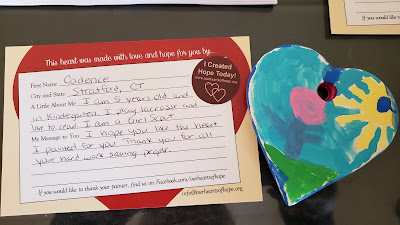 If you would like to
This heart was made with love and hope for you by...
First Name Cadence
City and State Stratford, CT
A Little About Me I am 5 years old and
in Kindergarten. I play lacrosse and
love to read. I am a Girl Scout
My Message to You I hope you like the heart
I painted for you. Thank you for all
your hard work saving people.
If you would like to thank your painter, find us on Facebook.com/ourheartsofhope
info@ourheartsofhope.org
I Created
Hope Today!
www.ourheartsofhope.org